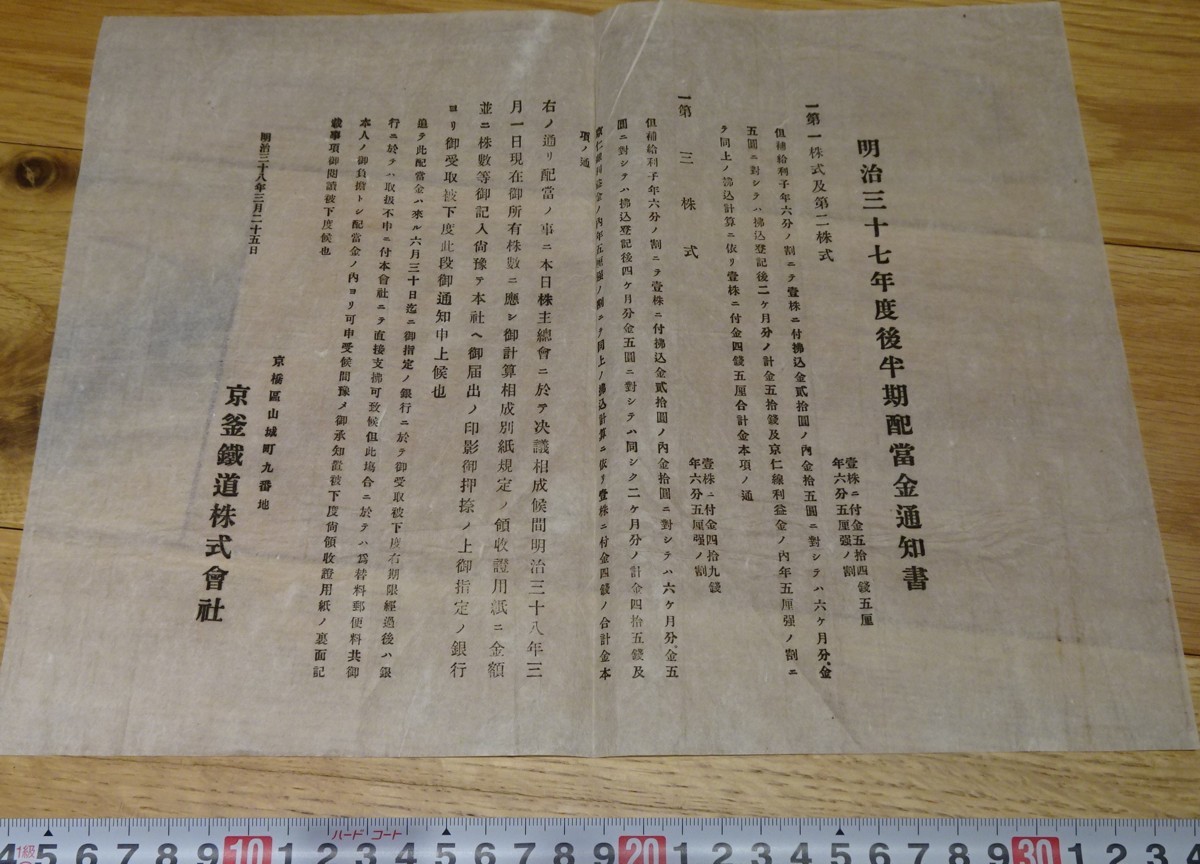 明治三十七年度後半期配當金通知書
一第一株式及第二株式
壹株ニ付金五拾四錢五厘
年六分五厘强ノ割
但補給利子年六分ノ割ニテ壹株ニ付拂込金貳拾圓ノ內金拾五圓ニ對シテハ六ケ月分、金
五圓ニ對シテハ拂込登記後二ケ月分ノ計金五拾錢及京仁線利益金ノ內年五厘强ノ割ニ
テ同上ノ拂込計算ニ依リ壹株ニ付金四錢五厘合計金本項ノ通
一第三株式
壹株ニ付金四拾九錢
年六分五厘强ノ割
但補給利子年六分ノ割ニテ壹株ニ付拂込金貳拾圓ノ內金拾圓ニ對シテハ六ケ月分、金五
圓ニ對シテハ拂込登記後四ケ月分金五圓ニ對シテハ同シク二ケ月分ノ計金四拾五錢及
京仁線利益金ノ內年五厘强ノ割ニテ同上ノ拂込計算ニ依リ壹株ニ付金四錢ノ合計金本
項ノ通
右ノ通リ配當ノ事ニ本日株主總會ニ於テ決議相成候間明治三十八年三
月一日現在御所有株數ニ應シ御計算相成別紙規定ノ領收證用紙ニ金額
並ニ株數等御記入尙豫テ本社ヘ御届出ノ印影御押捺ノ上御指定ノ銀行
ヨリ御受取被下度此段御通知申上候也
追テ此配當金ハ來ル六月三十日迄ニ御指定ノ銀行ニ於テ御受取被下度右期限經過後ハ銀
行ニ於テハ取扱不申ニ付本會社ニテ直接支拂可致候但此塲合ニ於テハ爲替料郵便料共御
本人ノ御負擔トシ配當金ノ內ヨリ可申受候間豫メ御承知置被下度尙領收證用紙ノ裏面記
載事項御閱讀被下度候也
明治三十八年三月二十五日
京橋區山城町九番地
京釜鐵道株式會社
1級
ハードコート
4 5 6 7 8 9 10 1 2 3 4 5 6 7 8 9 20 1 2 3 4 5 6 7 8 9 30 1 2 3 4